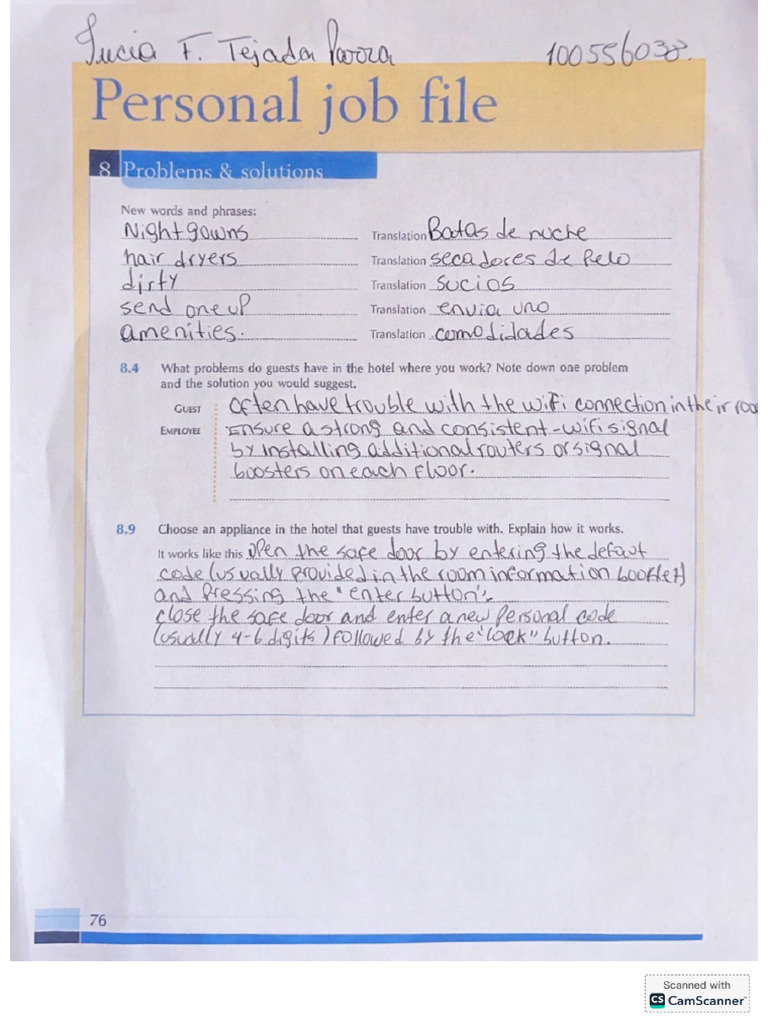 Lucia F. Tejada Parra 100556038.
Personal job file
8 Problems & solutions
New words and phrases:
Nightgowns Translation Batas de nuche
hair dryers Translation secadores de Pelo
dirty Translation sucios
send one up Translation envia uno
amenities. Translation comodidades
8.4 What problems do guests have in the hotel where you work? Note down one problem
and the solution you would suggest.
GUEST often have trouble with the wifi connection in their room
EMPLOYEE Ensure a strong and consistent-wifi signal
by installing additional routers or signal
boosters on each floor.
8.9 Choose an appliance in the hotel that guests have trouble with. Explain how it works.
It works like this open the safe door by entering the defaut
code (usually provided in the room information booklet)
and Pressing the "enter button".
close the safe door and enter a new Personal code
(usually 4-6 digits) followed by the "lock" button.
76
Scanned with
CS CamScanner